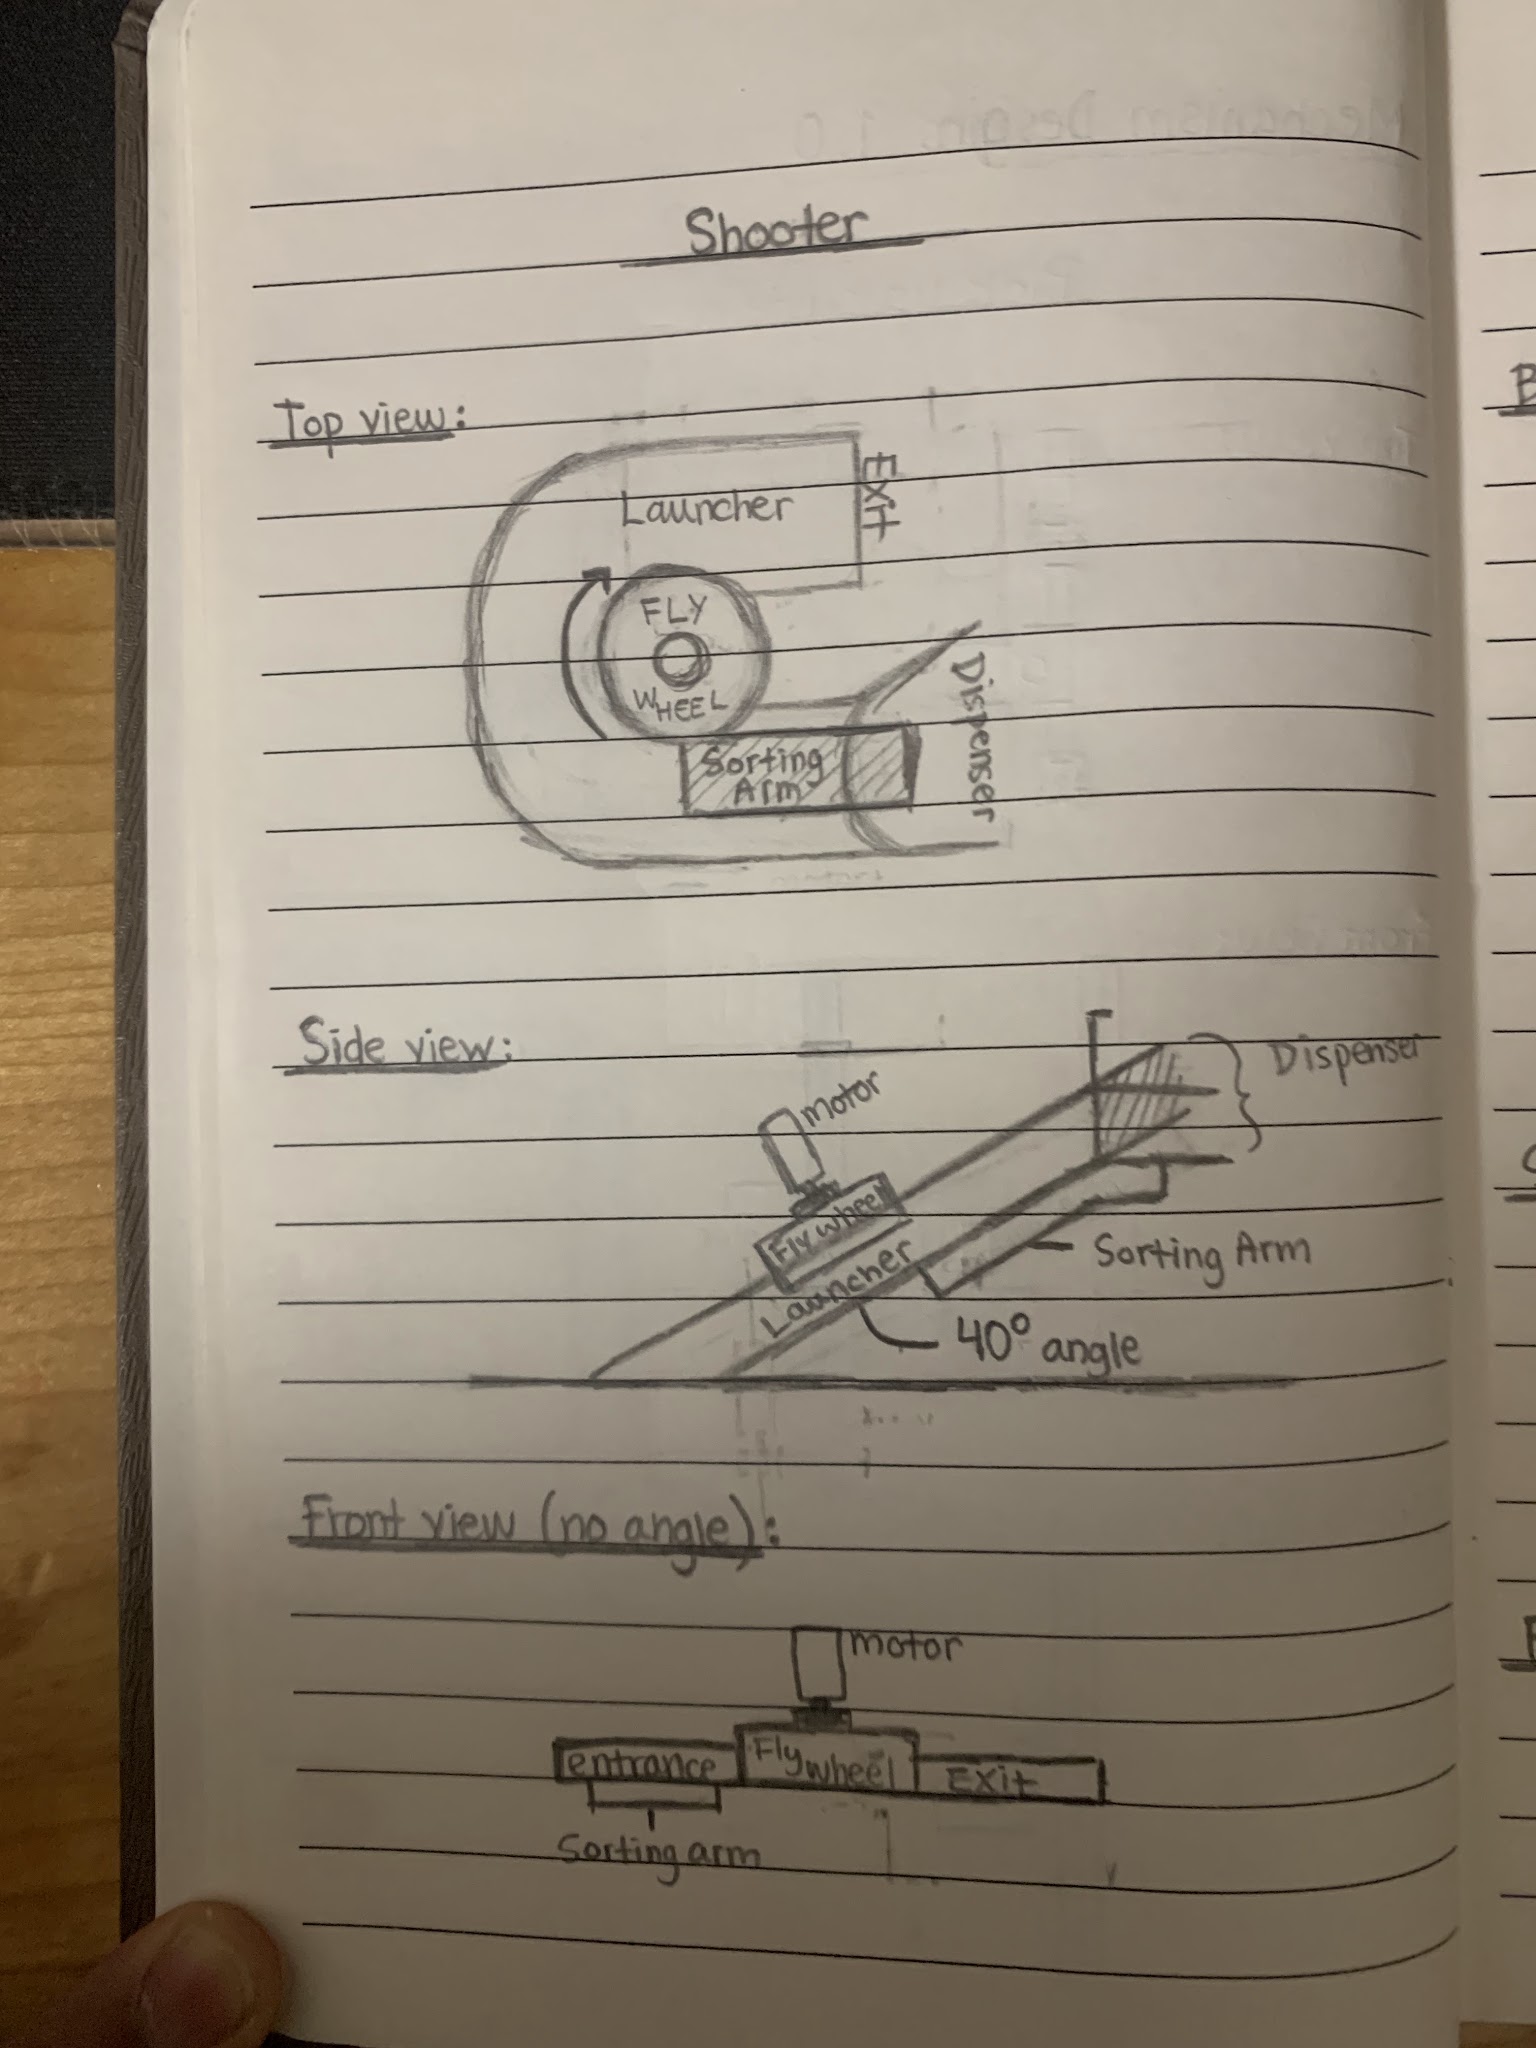 Shooter
Top view:
Launcher
Exit
FLY
WHEEL
Dispenser
Sorting
Arm
Side view:
motor
Dispenser
Flywheel
Launcher
Sorting Arm
40° angle
Front view (no angle):
motor
entrance
Flywheel
Exit
Sorting arm